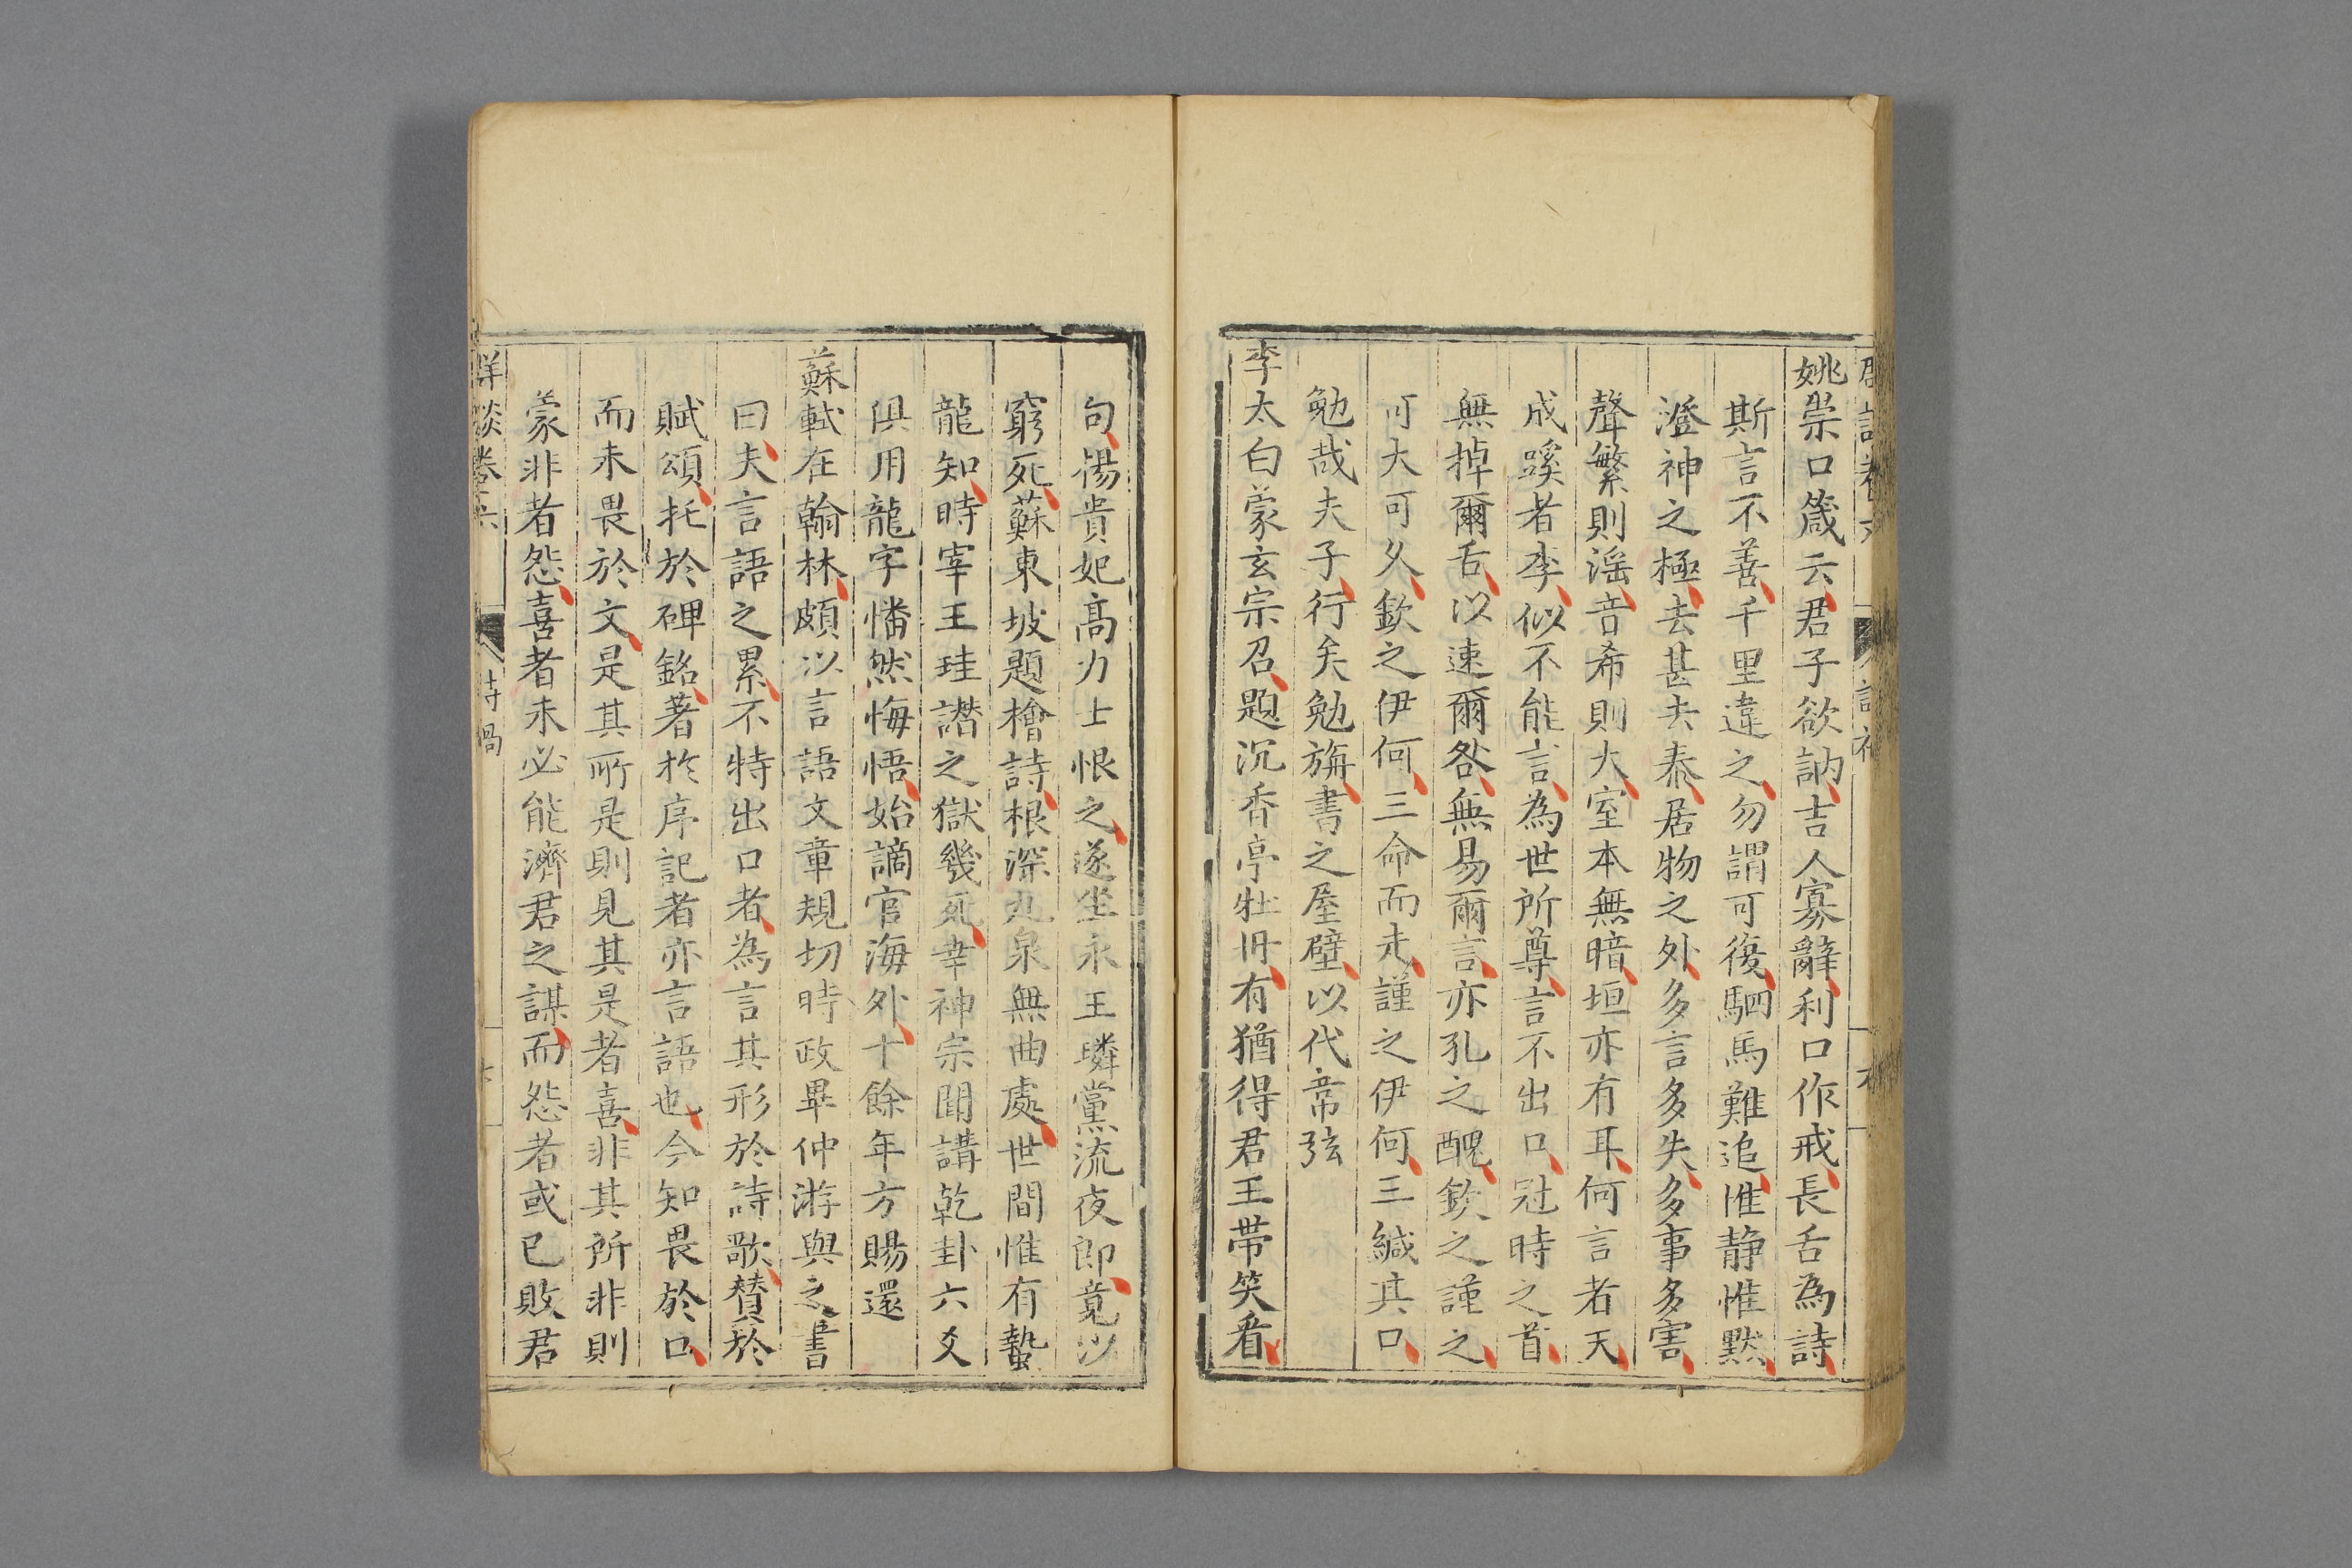 姚崇口箴云君子欲訥吉人寡辭利口作戒長舌為詩
斯言不善千里違之勿謂可復駟馬難追惟静惟黙
澄神之極去甚去泰居物之外多言多失多事多害
聲繁則滛音希則大室本無暗垣亦有耳何言者天
成蹊者李似不能言為世所尊言不出口冠時之首
無掉爾舌以速爾咎無易爾言亦孔之醜欽之謹之
可大可久欽之伊何三命而走謹之伊何三緘其口
勉哉夫子行矣勉旃書之屋壁以代韋弦
李太白蒙玄宗召題沉香亭牡丹有猶得君王帶笑看
句楊貴妃髙力士恨之遂坐永王璘黨流夜郎竟以
窮死蘇東坡題檜詩根深九泉無曲處世間惟有蟄
龍知時宰王珪譖之獄幾死幸神宗聞講乾卦六爻
俱用龍字憣然悔悟始謫官海外十餘年方賜還
蘇軾在翰林頗以言語文章規切時政畢仲游與之書
曰夫言語之累不特出口者為言其形於詩歌賛於
賦頌托於碑銘著於序記者亦言語也今知畏於口
而未畏於文是其所是則見其是者喜非其所非則
蒙非者怨喜者未必能濟君之謀而怨者或已敗君